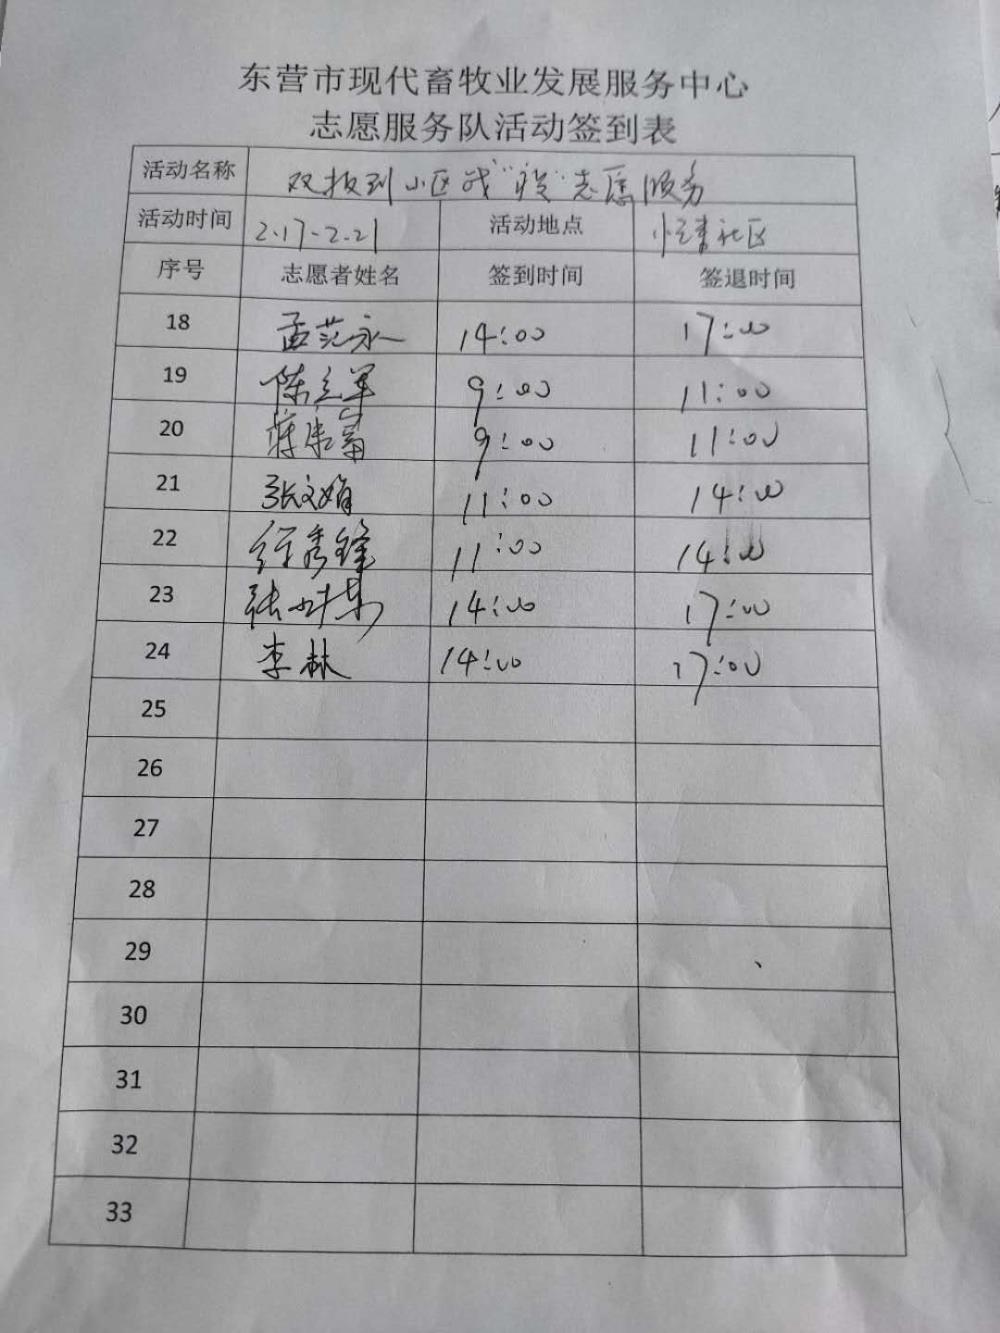 东营市现代畜牧业发展服务中心
志愿服务队活动签到表
活动名称 双报到小区战"疫"志愿服务
活动时间 2.17-2.21 活动地点 社区
序号 志愿者姓名 签到时间 签退时间
18 孟范永 14:00 17:00
19 陈立军 9:00 11:00
20 9:00 11:00
21 张文娟 11:00 14:00
22 徐秀锋 11:00 14:00
23 张 14:00 17:00
24 李林 14:00 17:00
25
26
27
28
29
30
31
32
33